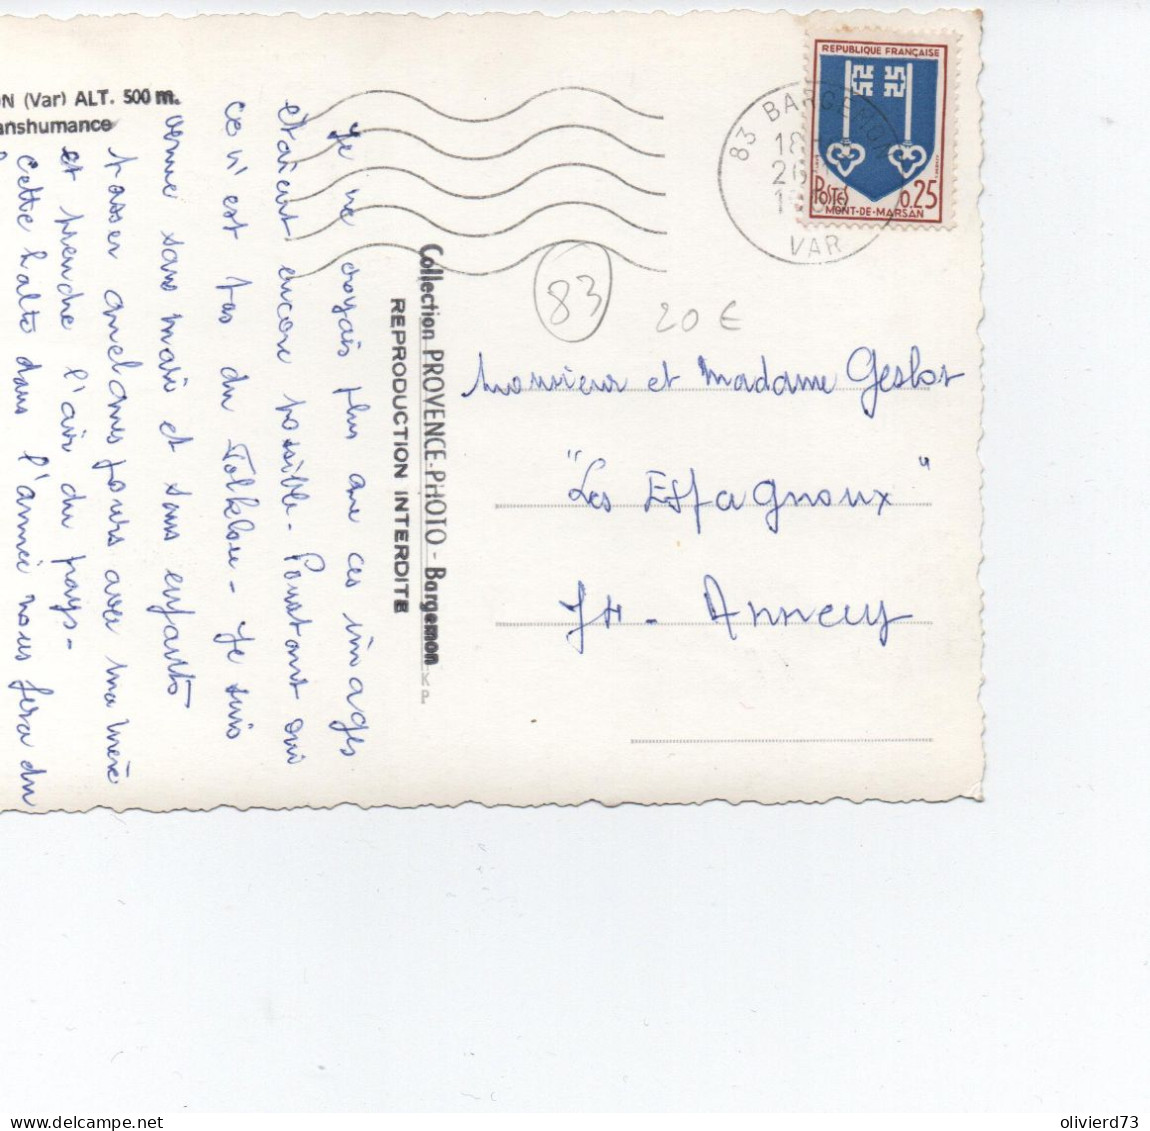 ON (Var) ALT. 500 m.
anshumance
Je ne croyais plus que ces images
étaient encore possible - Pourtant oui
ce n'est pas du Folklore - Je suis
venue sans mari et sans enfants
passer quelques jours avec ma mère
et prendre l'air du pays -
cette halte dans l'année nous fera du
Collection PROVENCE-PHOTO - Bargemon
REPRODUCTION INTERDITE
REPUBLIQUE FRANÇAISE
POSTES
0,25
MONT-DE-MARSAN
83 BARGEMON
18
VAR
83
20 €
Monsieur et Madame Geslot
"Les Espagnoux"
74 - Annecy
www.delcampe.net
olivierd73